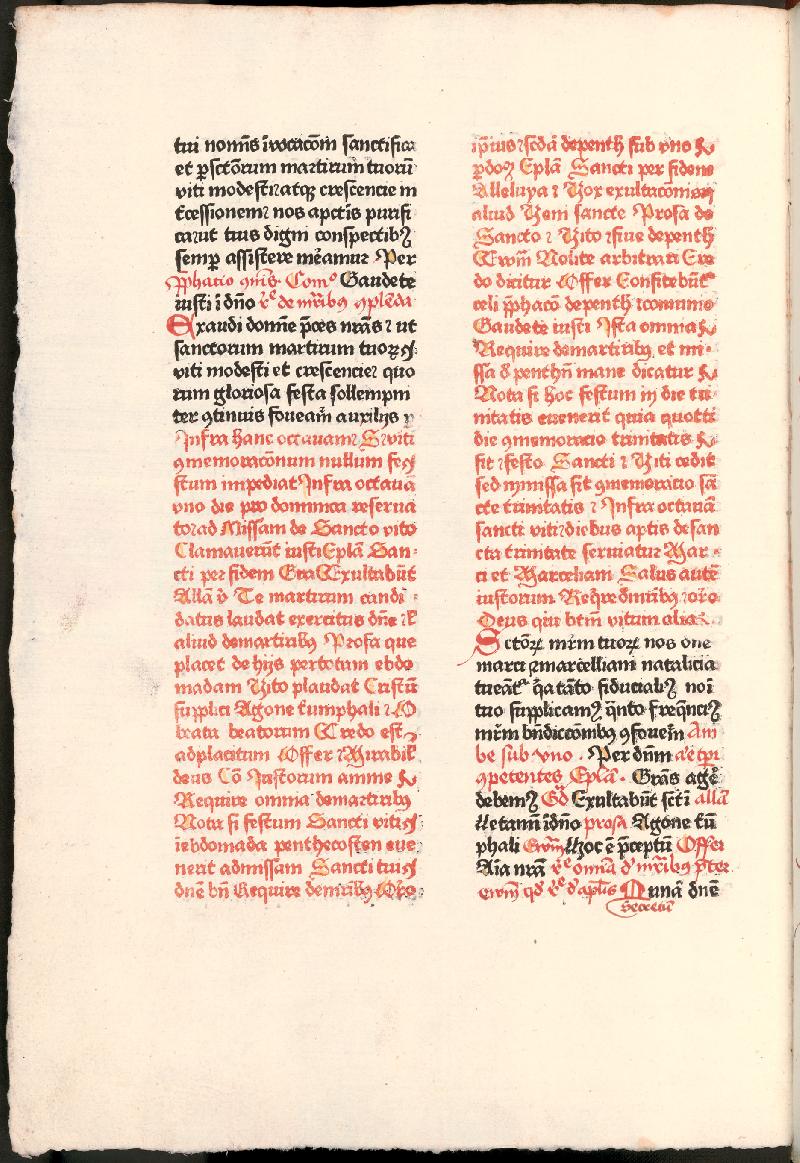 tui nom̄s īvocacōm sanctifica
et ꝑsctōrum martirum tuorū
viti modesti ⁊ atqꝫ crescencie in
t̄cessionem ⁊ nos apctīs purifi
ca⁊ut tuis digni conspectibꝫ
semꝑ assistere meͣamur Per
Com̄o Gaudete
iusti ī dn̄o de mr̄ibꝰ ꝯplēda
Exaudi domn̄e p̄ces nr̄as ⁊ ut
sanctorum martirum tuoꝝ
viti modesti et crescencie⁊ quo
rum gloriosa festa sollempni
ter ꝯtinuis foveam̄ auxilijs ꝑ
Infra hanc octauam ⁊ S viti
ꝯmemoracōnum nullum fe
stum impediat Infra octauā
vno die pro dominica reserua
to⁊ ad Missam de Sancto vito
Clamauerūt iusti Eplā San-
cti per fidem Gra Exultabūt
Allā v̄ Te martirum candi-
datus laudat exercitus dn̄e ⁊l̄
aliud de martiribꝰ Prosa que
placet de hijs per totum ebdo
madam Vito plaudat Cristū
supplici Agone t̄umphali ⁊ O
beata beatorum Credo est
ad placitum Offer ⁊ Mirabil̄
deus Cō Iustorum anime ⁊
Require omnia de martiribꝰ
Nota si festum Sancti viti
ī ebdomada penthecosten eue
nerit ad missam Sancti tui
dn̄e bn̄ Require de mr̄ibꝰ Oro
ip̄ius ⁊ scdā de penth̄ sub vno ⁊
ꝑdoꝫ Eplā Sancti per fidem
Alleluya ⁊ Vox exultacōnis
aliud Veni sancte Prosa de
Sancto ⁊ Vito ⁊ siue de penth̄
Ewm̄ Nolite arbitrari Cre
do dicitur Offer Confitebūt
celi p̄phacō de penth̄ ⁊ commo
Gaudete iusti Ista omnia ⁊
Require de martiribꝰ et mi-
ssa d̄ penthn̄ mane dicatur ⁊
Nota si hoc festum in die tri
nitatis euenerit quia quotti
die ꝯmemoracio trinitatis ⁊
fit ⁊ festo Sancti ⁊ Viti cedit
sed in missa fit ꝯmemoratio sā
cte trinitatis ⁊ Infra octauā
sancti viti ⁊ diebus aptis de san
cta trinitate seruiatur Mar-
ci et Marceliani Salus autē
iustorum Reqͥre de mr̄ibꝰ oro
Deus qui bem̄ vitum alia
Sctōrꝝ mr̄m tuorꝝ nos dn̄e
marci ⁊ marcelliani natalicia
tueāt̄ qͥa tāto fiducialiꝰ noī
tuo supplicamꝰ qͣnto freqn̄ciꝰ
mr̄m bn̄diccōnibꝰ ꝯfouem̄ Am
be sub vno . Per dn̄m
ꝯpetentes Eplā . Gras age
debemꝰ Gͣd Exultabūt sctī allā
Letamī ī dn̄o prosa Agone t̄ū
phali Ewm̄ Hoc ē p̄ceptū Offer
Aīa nrā omnia d̄ mr̄ibꝰ p̄ter
ewm̄ qd̄ d̄ aplīs Munā dn̄e
Secretū